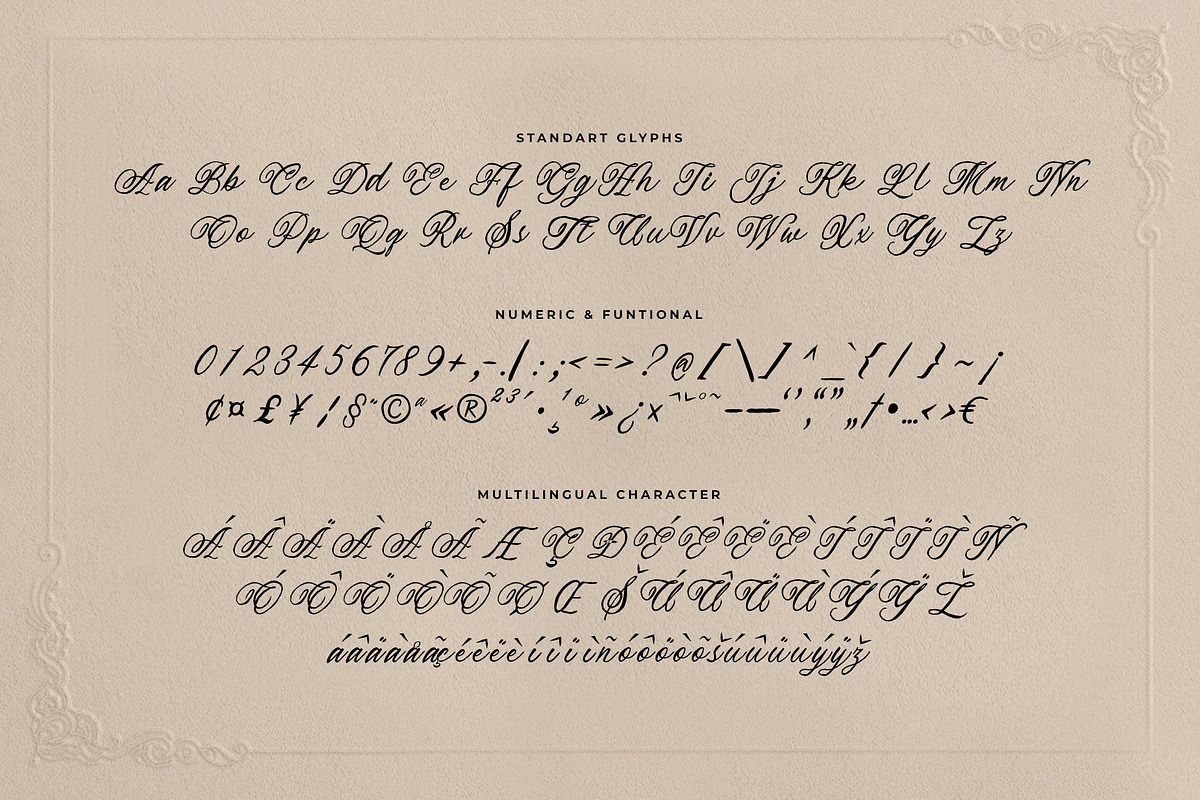 STANDART GLYPHS
Aa Bb Cc Dd Ee Ff Gg Hh Ii Jj Kk Ll Mm Nn
Oo Pp Qq Rr Ss Tt Uu Vv Ww Xx Yy Zz
NUMERIC & FUNTIONAL
0123456789+,-./:;<=>?@[\]^_`{|}~¡
¢¤£¥¦§¨©ª«®²³´•¸¹º»¿×ˆ˜–—‘’‚“”„†•…‹›€
MULTILINGUAL CHARACTER
ÁÂÄÀÅÃÆÇÐÉÊËÈÍÎÏÌÑ
ÓÔÖÒÕØŒŠÚÛÜÙÝŸŽ
áâäàåãçéêëèíîïìñóôöòõšúûüùýÿž